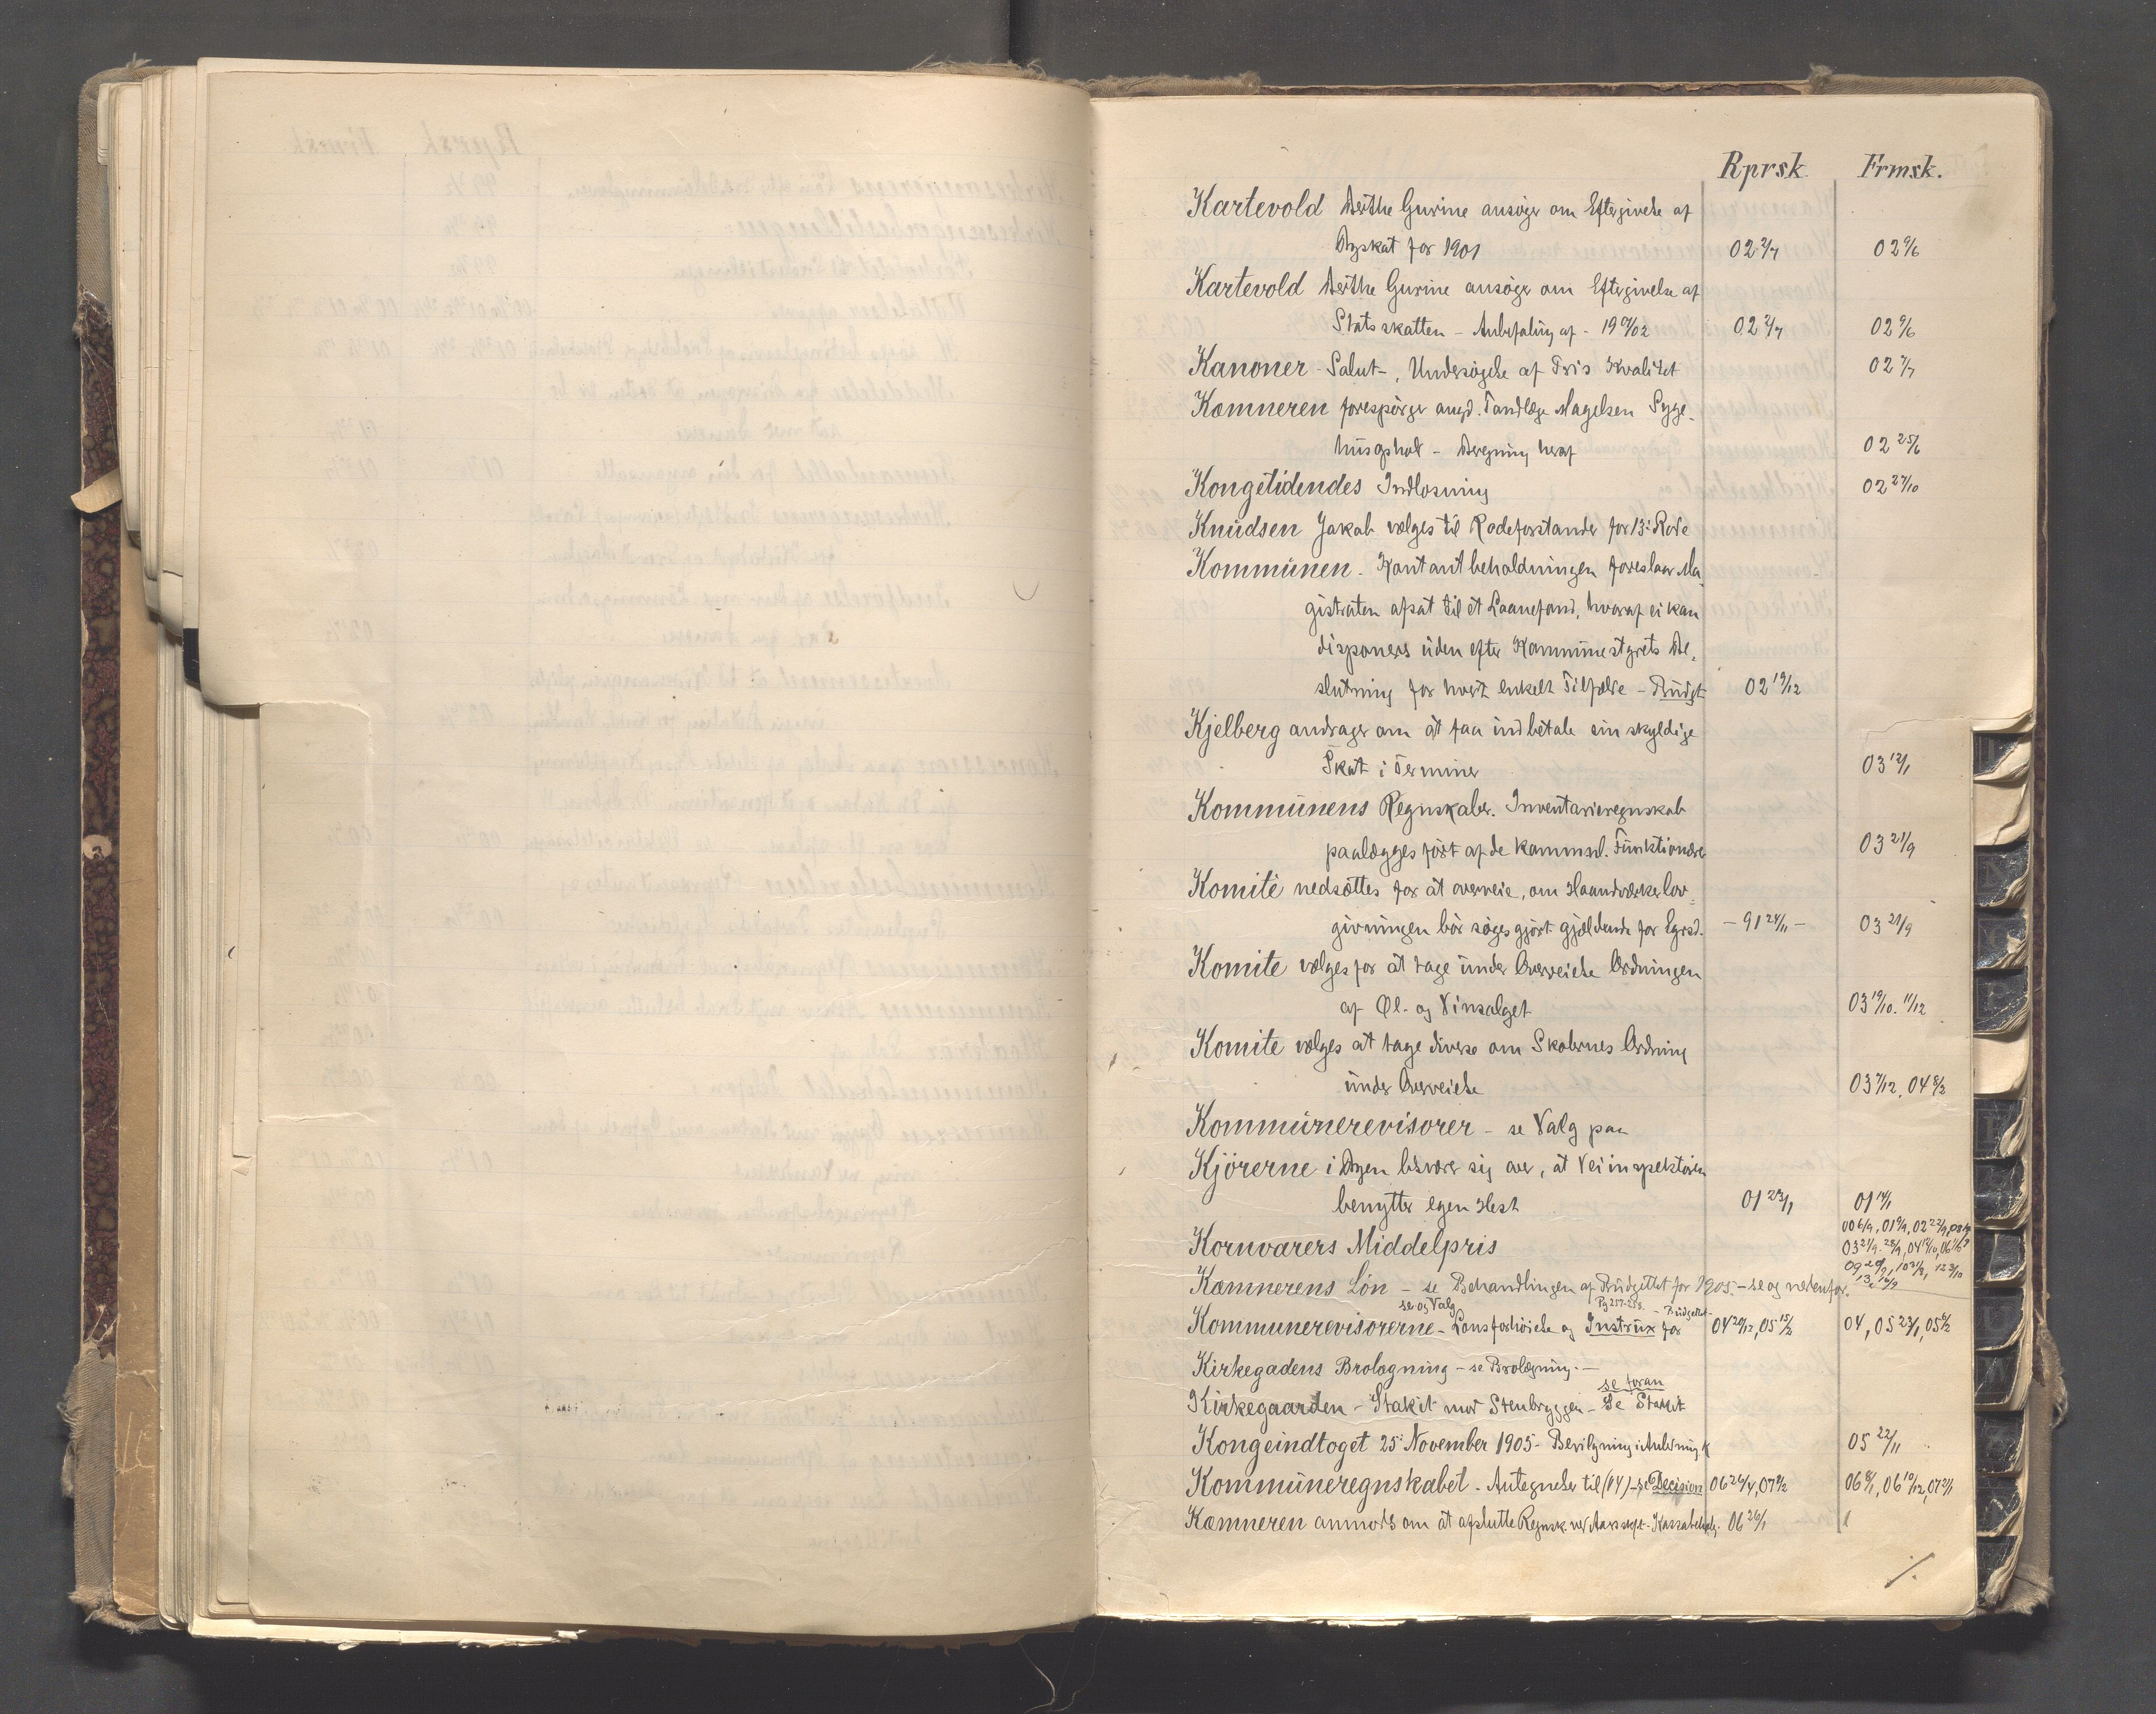 Rprsk. Frmsk.
Kartevold Berthe Gurine ansöger om Eftergivelse af
Byskat for 1901 02 2/7 02 9/6
Kartevold Berthe Gurine ansöger om Eftergivelse af
Statsskatten - Anbefaling af - 19 01/02 02 2/7 02 9/6
Kanoner - Salut-, Undersögelse af Pris Kvalitet 02 7/7
Kæmneren forespörger angd. Tandlæge Magelsen Syge-
husophol - Beregning heraf 02 25/6
Kongetidendes Indlösning 02 27/10
Knudsen Jakob vælges til Rodeforstander for 13: Rode
Kommunen - Kontantbeholdningen foreslaar Ma-
gistraten afsat til et Laanefond, hvoraf ei kan
disponeres uden efter Kommunestyrets Be-
slutning for hvert enkelt Tilfælde - Budgt 02 19/12
Kjelberg andrager om at faa indbetale sin skyldige
Skat i Terminer 03 12/1
Kommunens Regnskaber. Inventarieregnskab
paalægges fört af de kommunl. Funktionærer 03 21/9
Komité nedsættes for at overveie, om Haandværkerlov-
givningen bör söges gjört gjældende for Egrsd. - 91 24/11 - 03 21/9
Komite vælges for at tage under Overveielse Ordningen
af Øl- og Vinsalget 03 19/10. 11/12
Komite vælges at tage diverse om Skolernes Ordning
under Overveielse 03 7/12, 04 8/2
Kommunerevisorer - se Valg paa
Kjörerne i Byen besværer sig over, at Veiinspektören
benytter egen Hest 01 23/1 01 14/1
Kornvarers Middelpris
Kæmnerens Lön - se Behandlingen af Budgettet for 1905. - se og nedenfor.
se og Valg Pg 257-258. - Budgettet -
Kommunerevisorerne - Lönsforhöielse og Instrux for 04 20/12, 05 15/2 04, 05 23/1, 05 6/2
Kirkegadens Brolægning - se Brolægning. -
se foran
Kirkegaarden - Stakit mod Stenbryggen - Se Stakit
Kongeindtoget 25: November 1905 - Bevilgning i Anledning 05 22/11
Kommuneregnskabet - Antegnelser til (04) - se Decision 06 26/4, 07 9/2 06 8/1, 06 10/12, 07 21/1
Kæmneren anmodes om at afslutte Regnsk. ved Aarsskift - Kassabeholg. 06 26/1